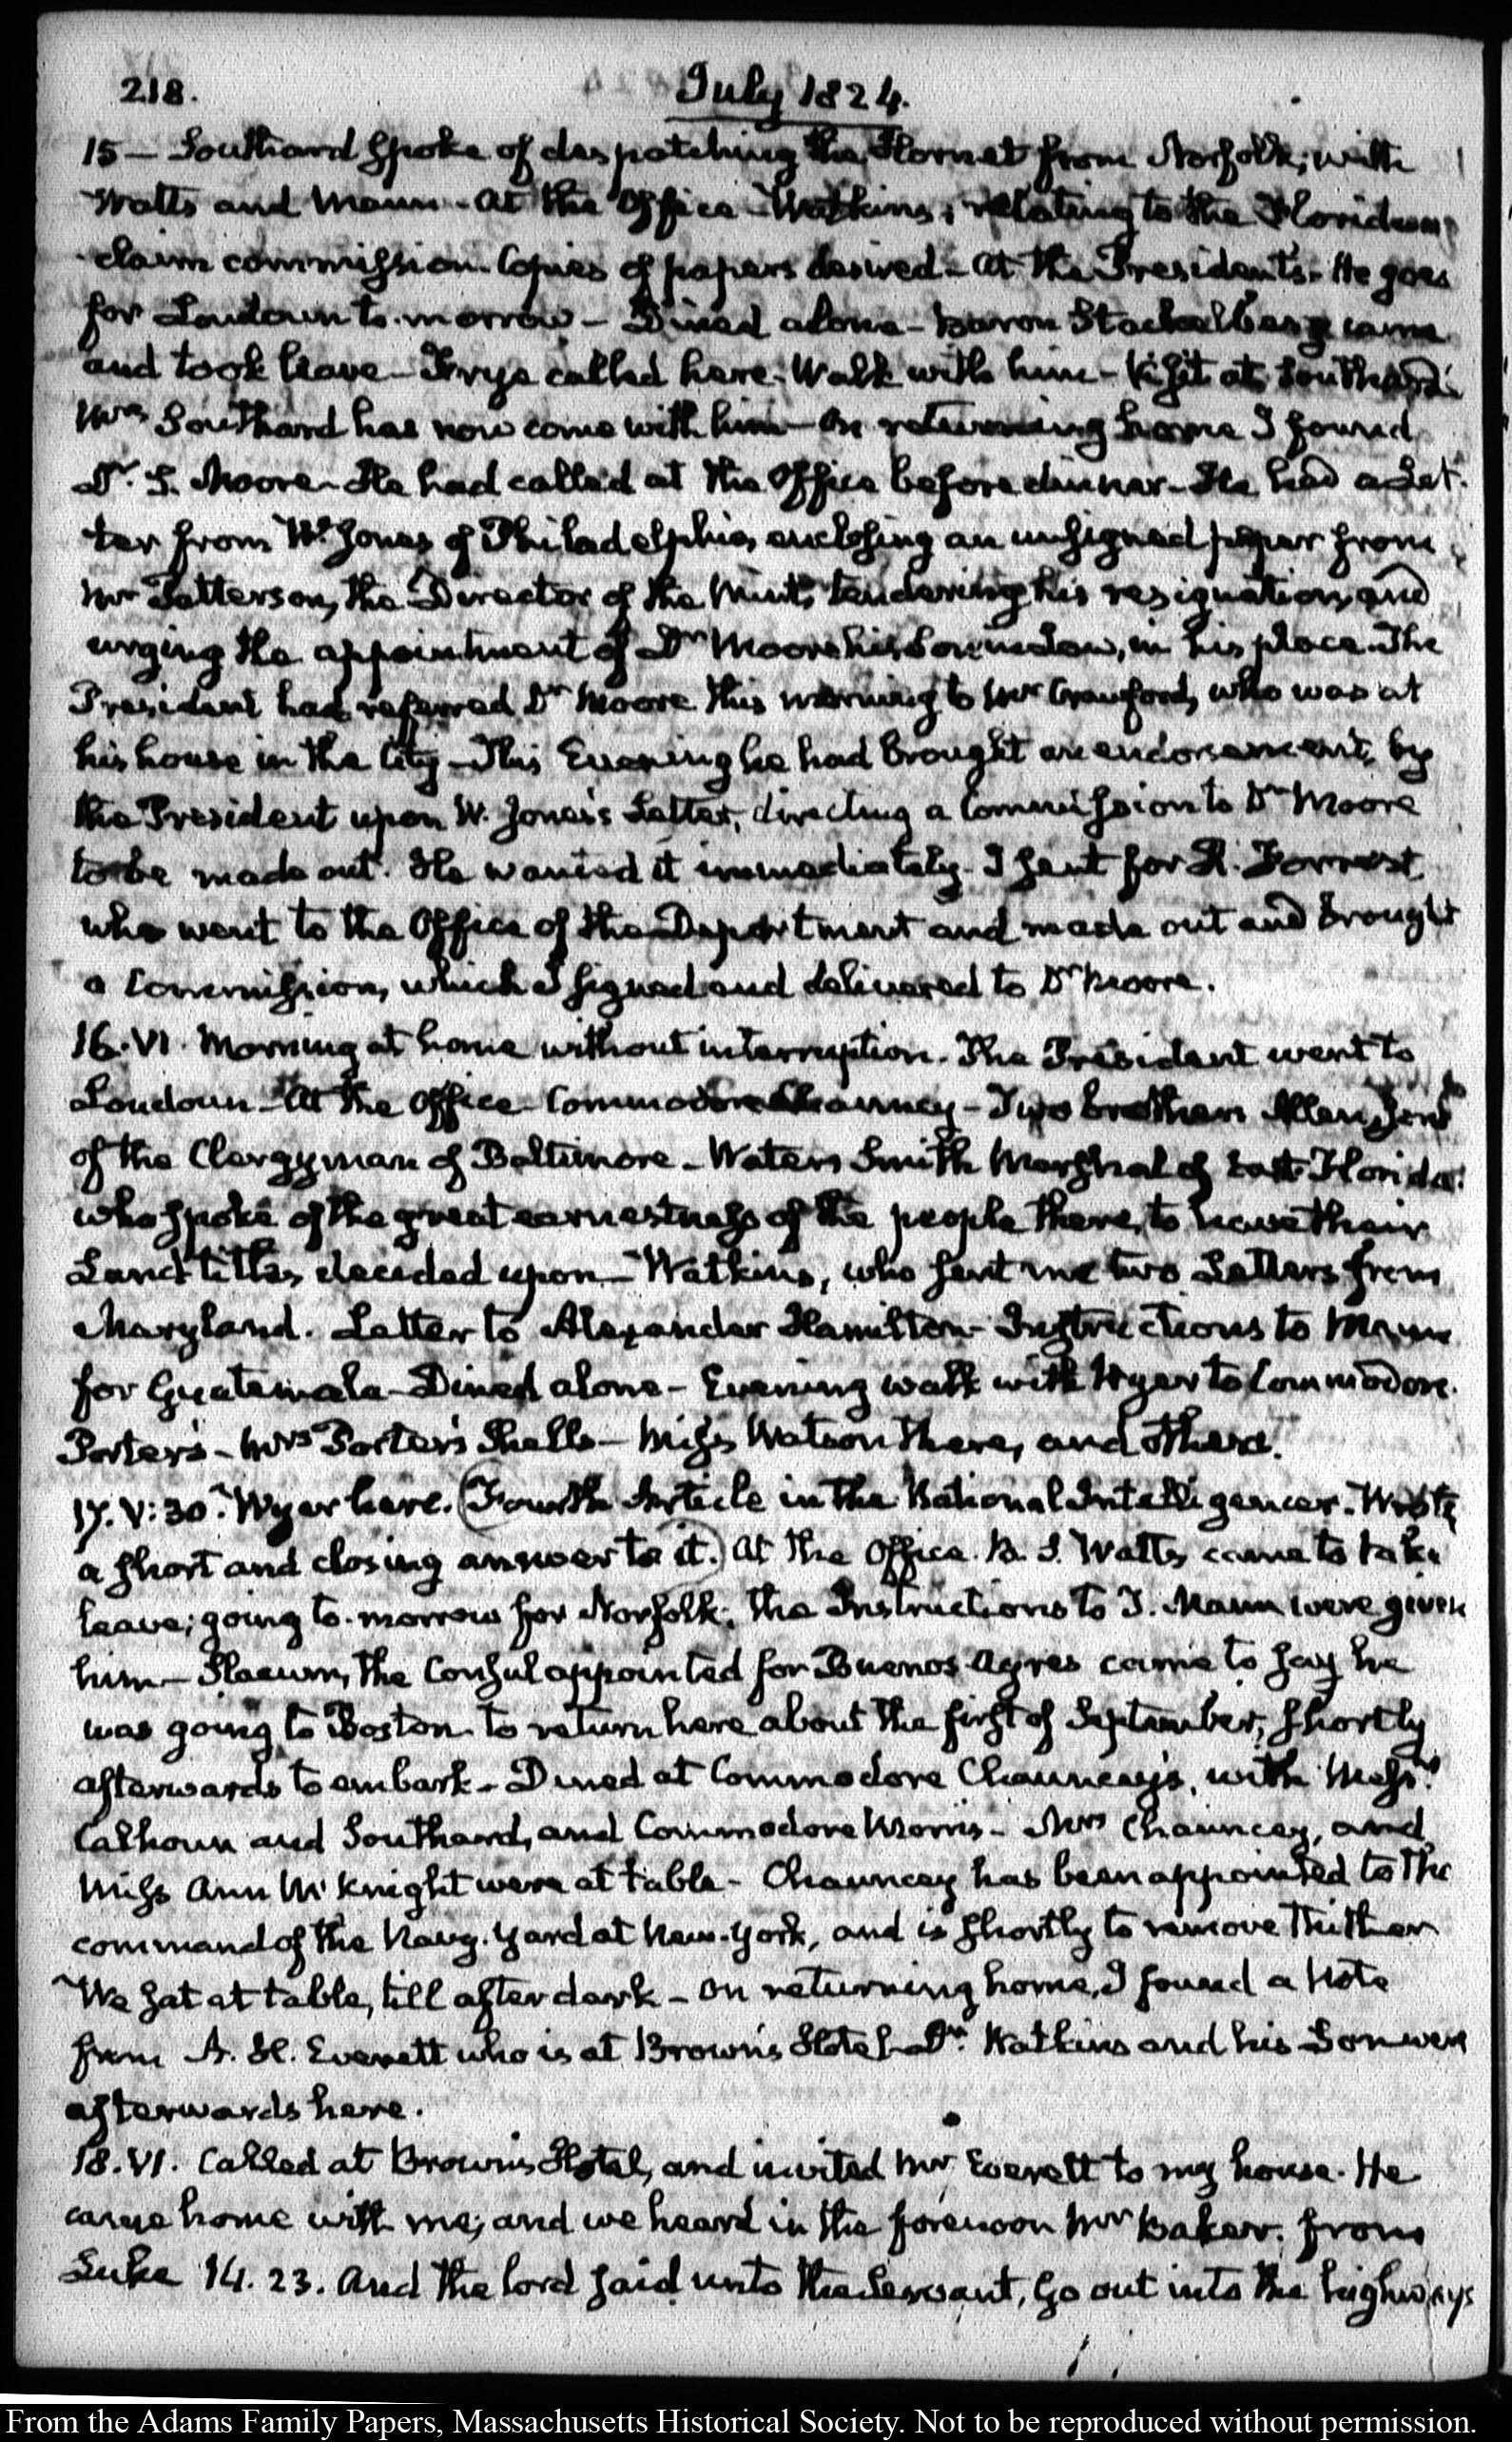 218.
July 1824.
15 — Southard spoke of despatching the Hornet from Norfolk; with
Watts and Mann – At the Office – Watkins; relating to the Floridean
claim commission. Copies of papers desired – At the President's – He goes
for Loudoun to-morrow – Dined alone – Baron Stackelberg came
and took leave – Frye called here – Walk with him – Visit at Southard's
Mrs Southard has now come with him – On returning home I found
Dr. S. Moore – He had called at the Office before dinner – He had a Let-
ter from W. Jones of Philadelphia, enclosing an unsigned paper from
Mr Patterson, the Director of the Mint, tendering his resignation, and
urging the appointment of Dr Moore his Son in Law, in his place. The
President had referred Dr Moore this morning to Mr Crawford, who was at
his house in the City – This Evening he had brought an endorsement, by
the President upon W. Jones's Letter, directing a Commission to Dr Moore
to be made out. He wanted it immediately – I sent for R. Forrest
who went to the Office of the Department and made out and brought
a Commission, which I signed and delivered to Dr Moore.
16. VI. Morning at home without interruption. The President went to
Loudoun – At the Office – Commodore Chauncey – Two brothers Allen, Sons
of the Clergyman of Baltimore – Waters Smith Marshal of East-Florida:
who spoke of the great earnestness of the people there, to have their
Land titles decided upon – Watkins, who sent me two Letters from
Maryland. Letter to Alexander Hamilton – Instructions to Mann
for Guatemala – Dined alone – Evening walk with Wyer to Commodore
Porter's – Mrs Porter's Shells – Miss Watson there, and others.
17. V:30. Wyer here. (Fourth Article in the National Intelligencer. Wrote
a short and closing answer to it.) At the Office. B. S. Watts came to take
leave; going to-morrow for Norfolk. The Instructions to T. Mann were given
him – Slacum, the Consul appointed for Buenos Ayres came to say he
was going to Boston to return here about the first of September, shortly
afterwards to embark – Dined at Commodore Chauncey's, with Messrs
Calhoun and Southard, and Commodore Morris – Mrs Chauncey, and
Miss Ann McKnight were at table – Chauncey has been appointed to the
command of the Navy-Yard at New-York, and is shortly to remove thither
We sat at table, till after dark – On returning home, I found a Note
from A. H. Everett who is at Brown's Hotel – Dr. Watkins and his Son were
afterwards here.
18. VI. Called at Brown's Hotel, and invited Mr Everett to my house. He
came home with me; and we heard in the forenoon Mr Baker. from
Luke 14. 23. And the lord said unto the Servant, Go out into the highways
From the Adams Family Papers, Massachusetts Historical Society. Not to be reproduced without permission.